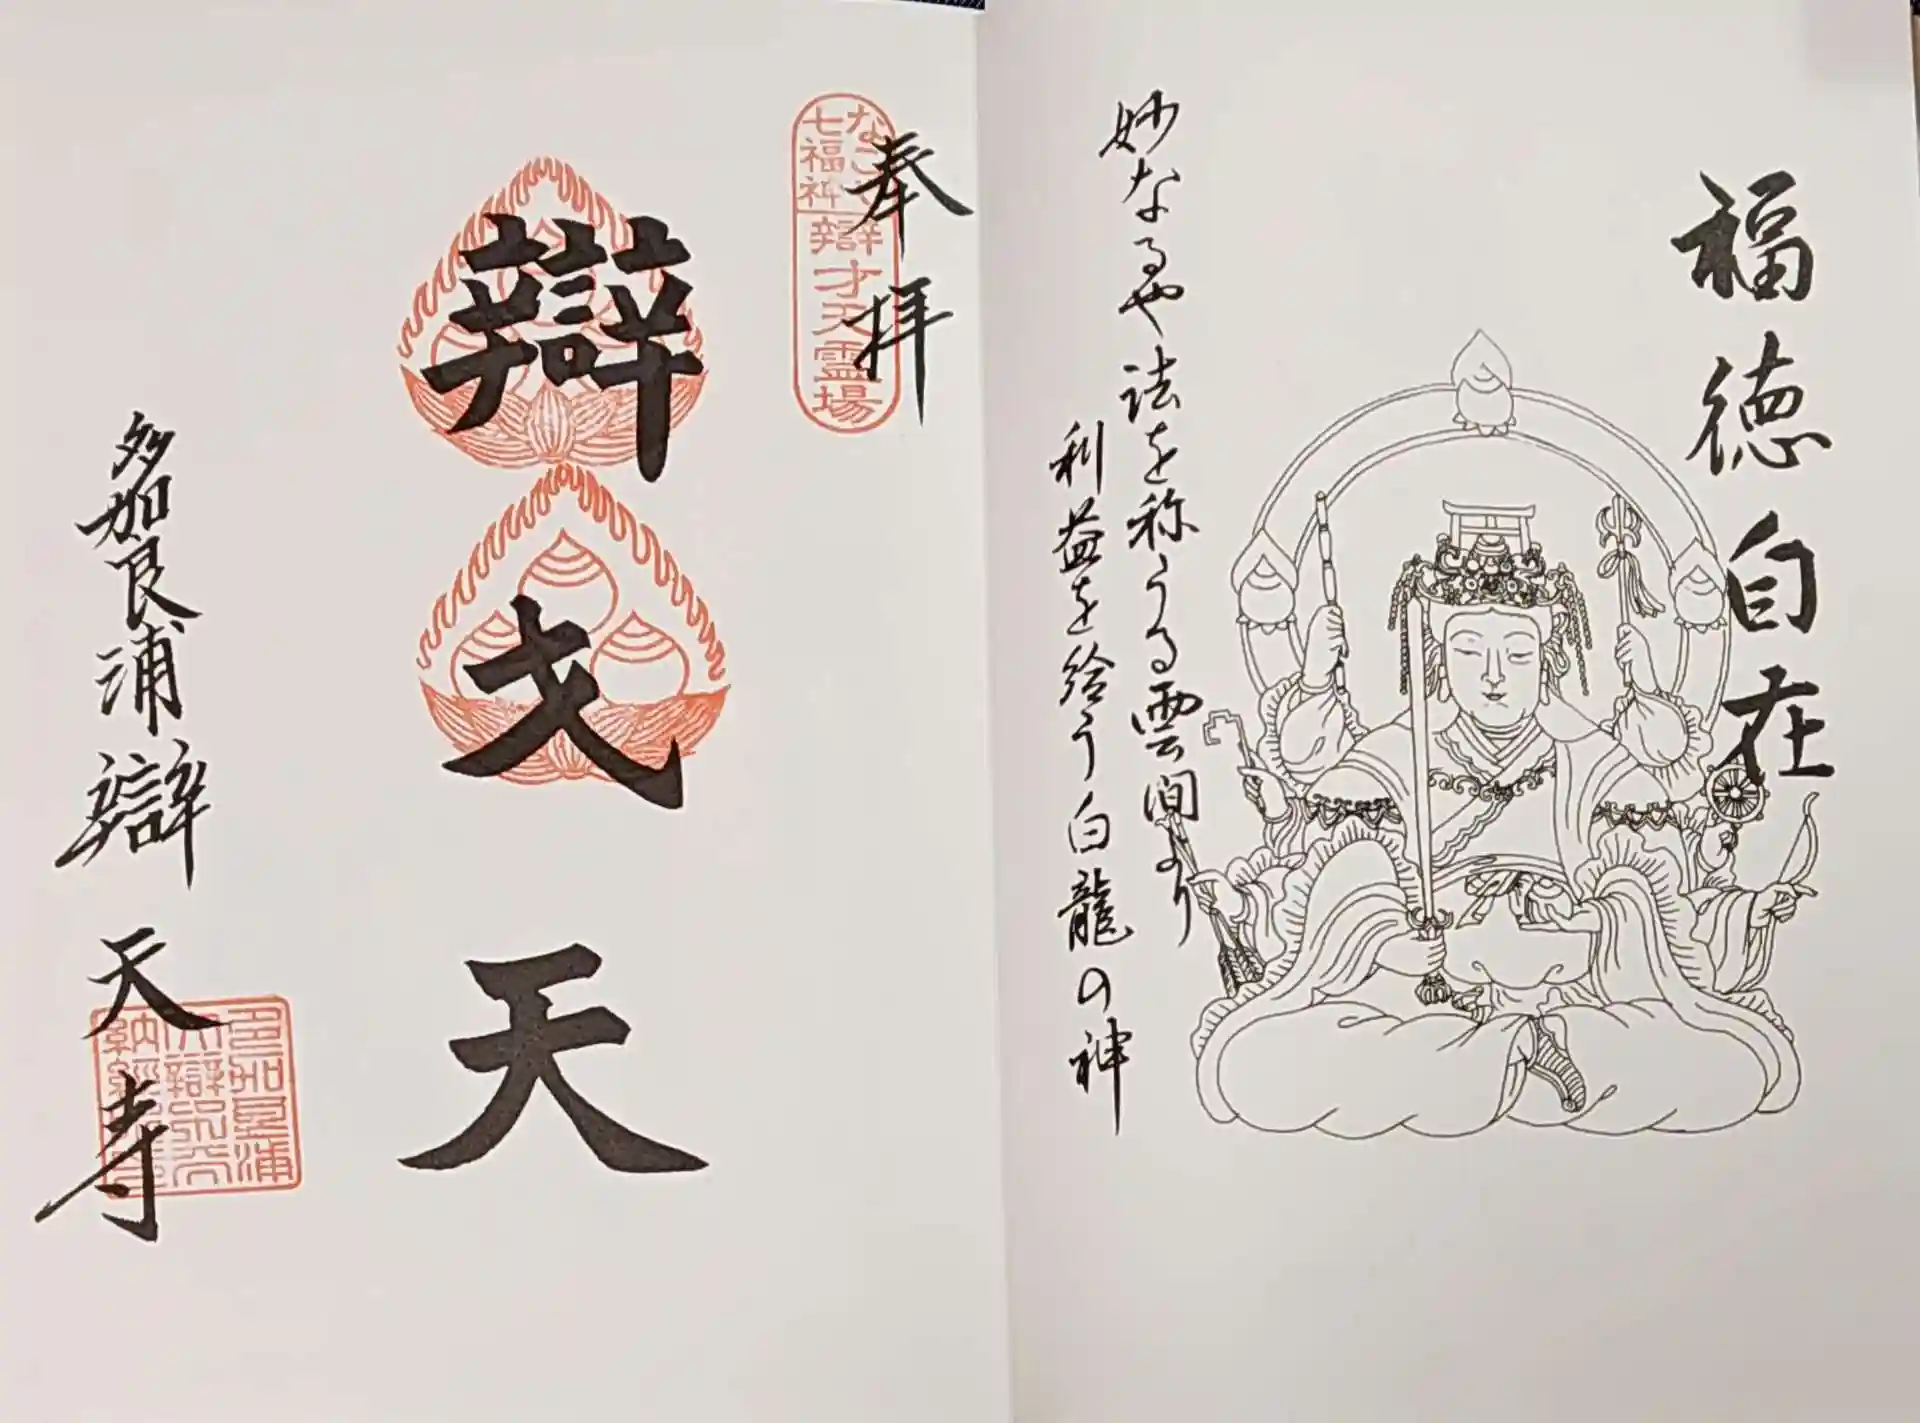 福徳自在
妙なるや法を称うる雲間より
利益を給う白龍の神
奉拝
なごや
七福神
辯才天霊場
辯才天
多加良浦辯天寺
多加良浦